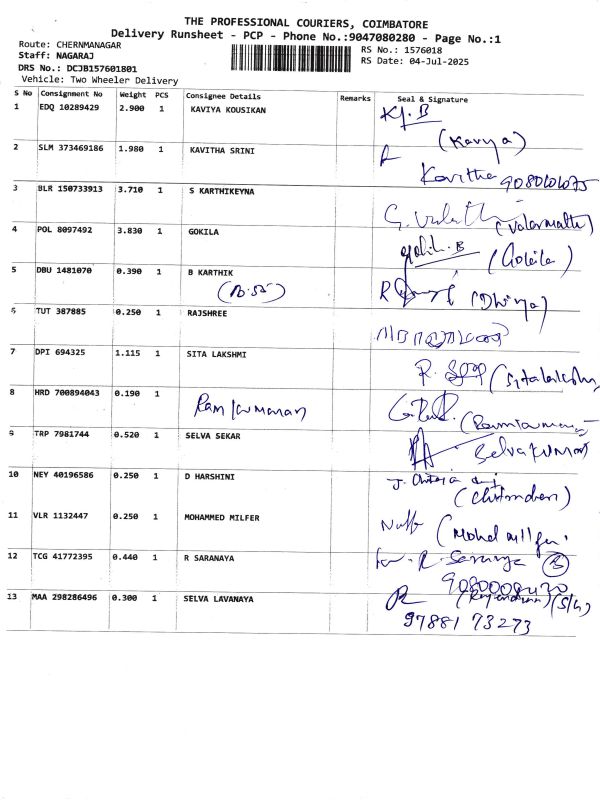 THE PROFESSIONAL COURIERS, COIMBATORE
Delivery Runsheet - PCP - Phone No.:9047080280 - Page No.:1
Route: CHERNMANAGAR
Staff: NAGARAJ
DRS No.: DCJB157601801
Vehicle: Two Wheeler Delivery
RS No.: 1576018
RS Date: 04-Jul-2025
S No Consignment No Weight PCS Consignee Details Remarks Seal & Signature
1 EDQ 10289429 2.900 1 KAVIYA KOUSIKAN
(Kavya)
2 SLM 373469186 1.980 1 KAVITHA SRINI
Kavitha
3 BLR 150733913 3.710 1 S KARTHIKEYNA
(Valarmathi)
4 POL 8097492 3.830 1 GOKILA
(Gokila)
5 DBU 1481070 0.390 1 B KARTHIK
(Dhivya)
6 TUT 387885 0.250 1 RAJSHREE
7 DPI 694325 1.115 1 SITA LAKSHMI
8 HRD 700894043 0.190 1
Ramkumaran
9 TRP 7981744 0.520 1 SELVA SEKAR
Selvakumar
10 NEY 40196586 0.250 1 D HARSHINI
11 VLR 1132447 0.250 1 MOHAMMED MILFER
12 TCG 41772395 0.440 1 R SARANAYA
13 MAA 298286496 0.300 1 SELVA LAVANAYA
97881 73273